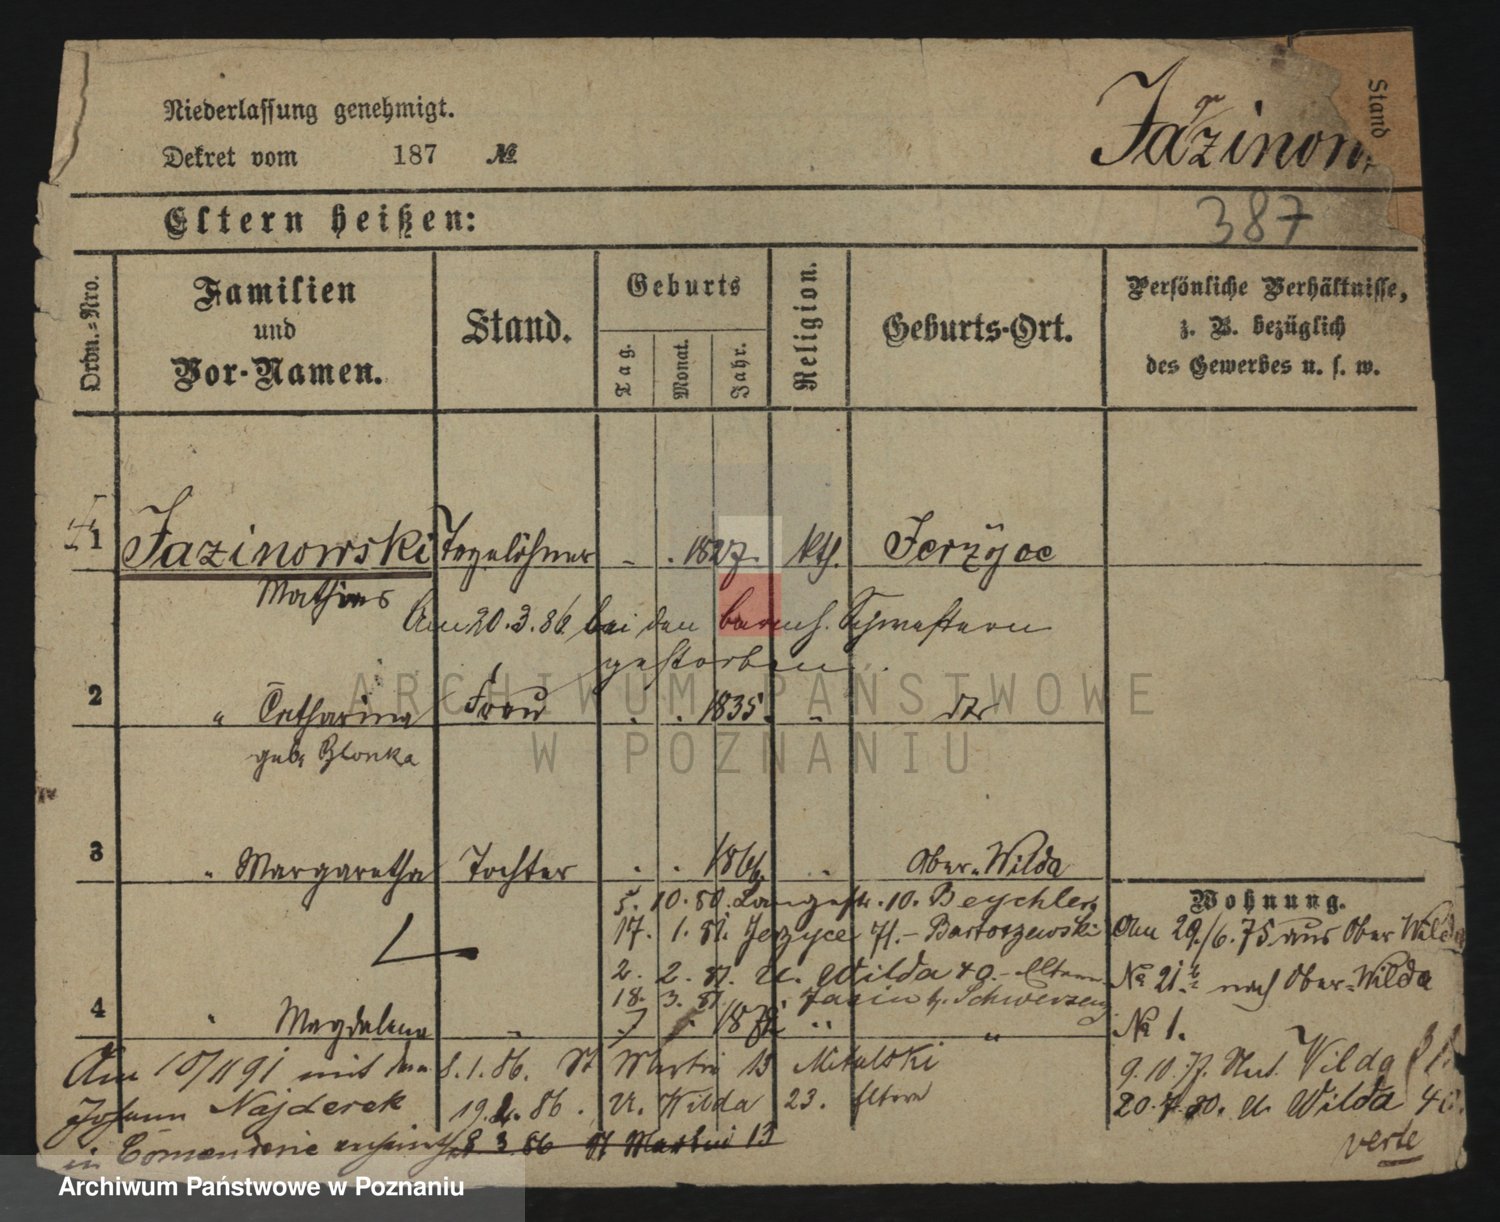 Niederlassung genehmigt.
Dekret vom 187 №
Stand
Jazinow
387
Eltern heißen:
Ordn.=Nro.
Familien
und
Vor-Namen.
Stand.
Geburts
Tag.
Monat.
Jahr.
Religion.
Geburts-Ort.
Persönliche Verhältnisse,
z. B. bezüglich
des Gewerbes u. s. w.
1 Jazinowski Tagelöhner - . 1827. kth. Jerzyce
Mathias
Am 20.3.86 bei den barmh. Schwestern
gestorben.
2 " Catharina Frau . . 1835. " dto
geb. Blonka
3 " Margaretha Tochter . . 1866. " Ober-Wilda
5. 10. 80. Langestr. 10. Beychler
17. 1. 81. Jerzyce 71. - Bartoszewski
2. 2. 81. U. Wilda 40. - Eltern
18. 3. 81. b. Schwersenz
4 " Magdalena " "
Wohnung.
Am 29./6.75 aus Ober Wilda
№ 21 nach Ober-Wilda
№ 1.
9.10.77. Unt. Wilda
20. 80. U. Wilda 40.
verte
Am 10/11 91 mit dem
Johann Najderek
in Comenderie
8.1.86. St Martin 13
19. 86. U. Wilda 23. Eltern
8 3 86 St Martin 13
ARCHIWUM PAŃSTWOWE
W POZNANIU
Archiwum Państwowe w Poznaniu